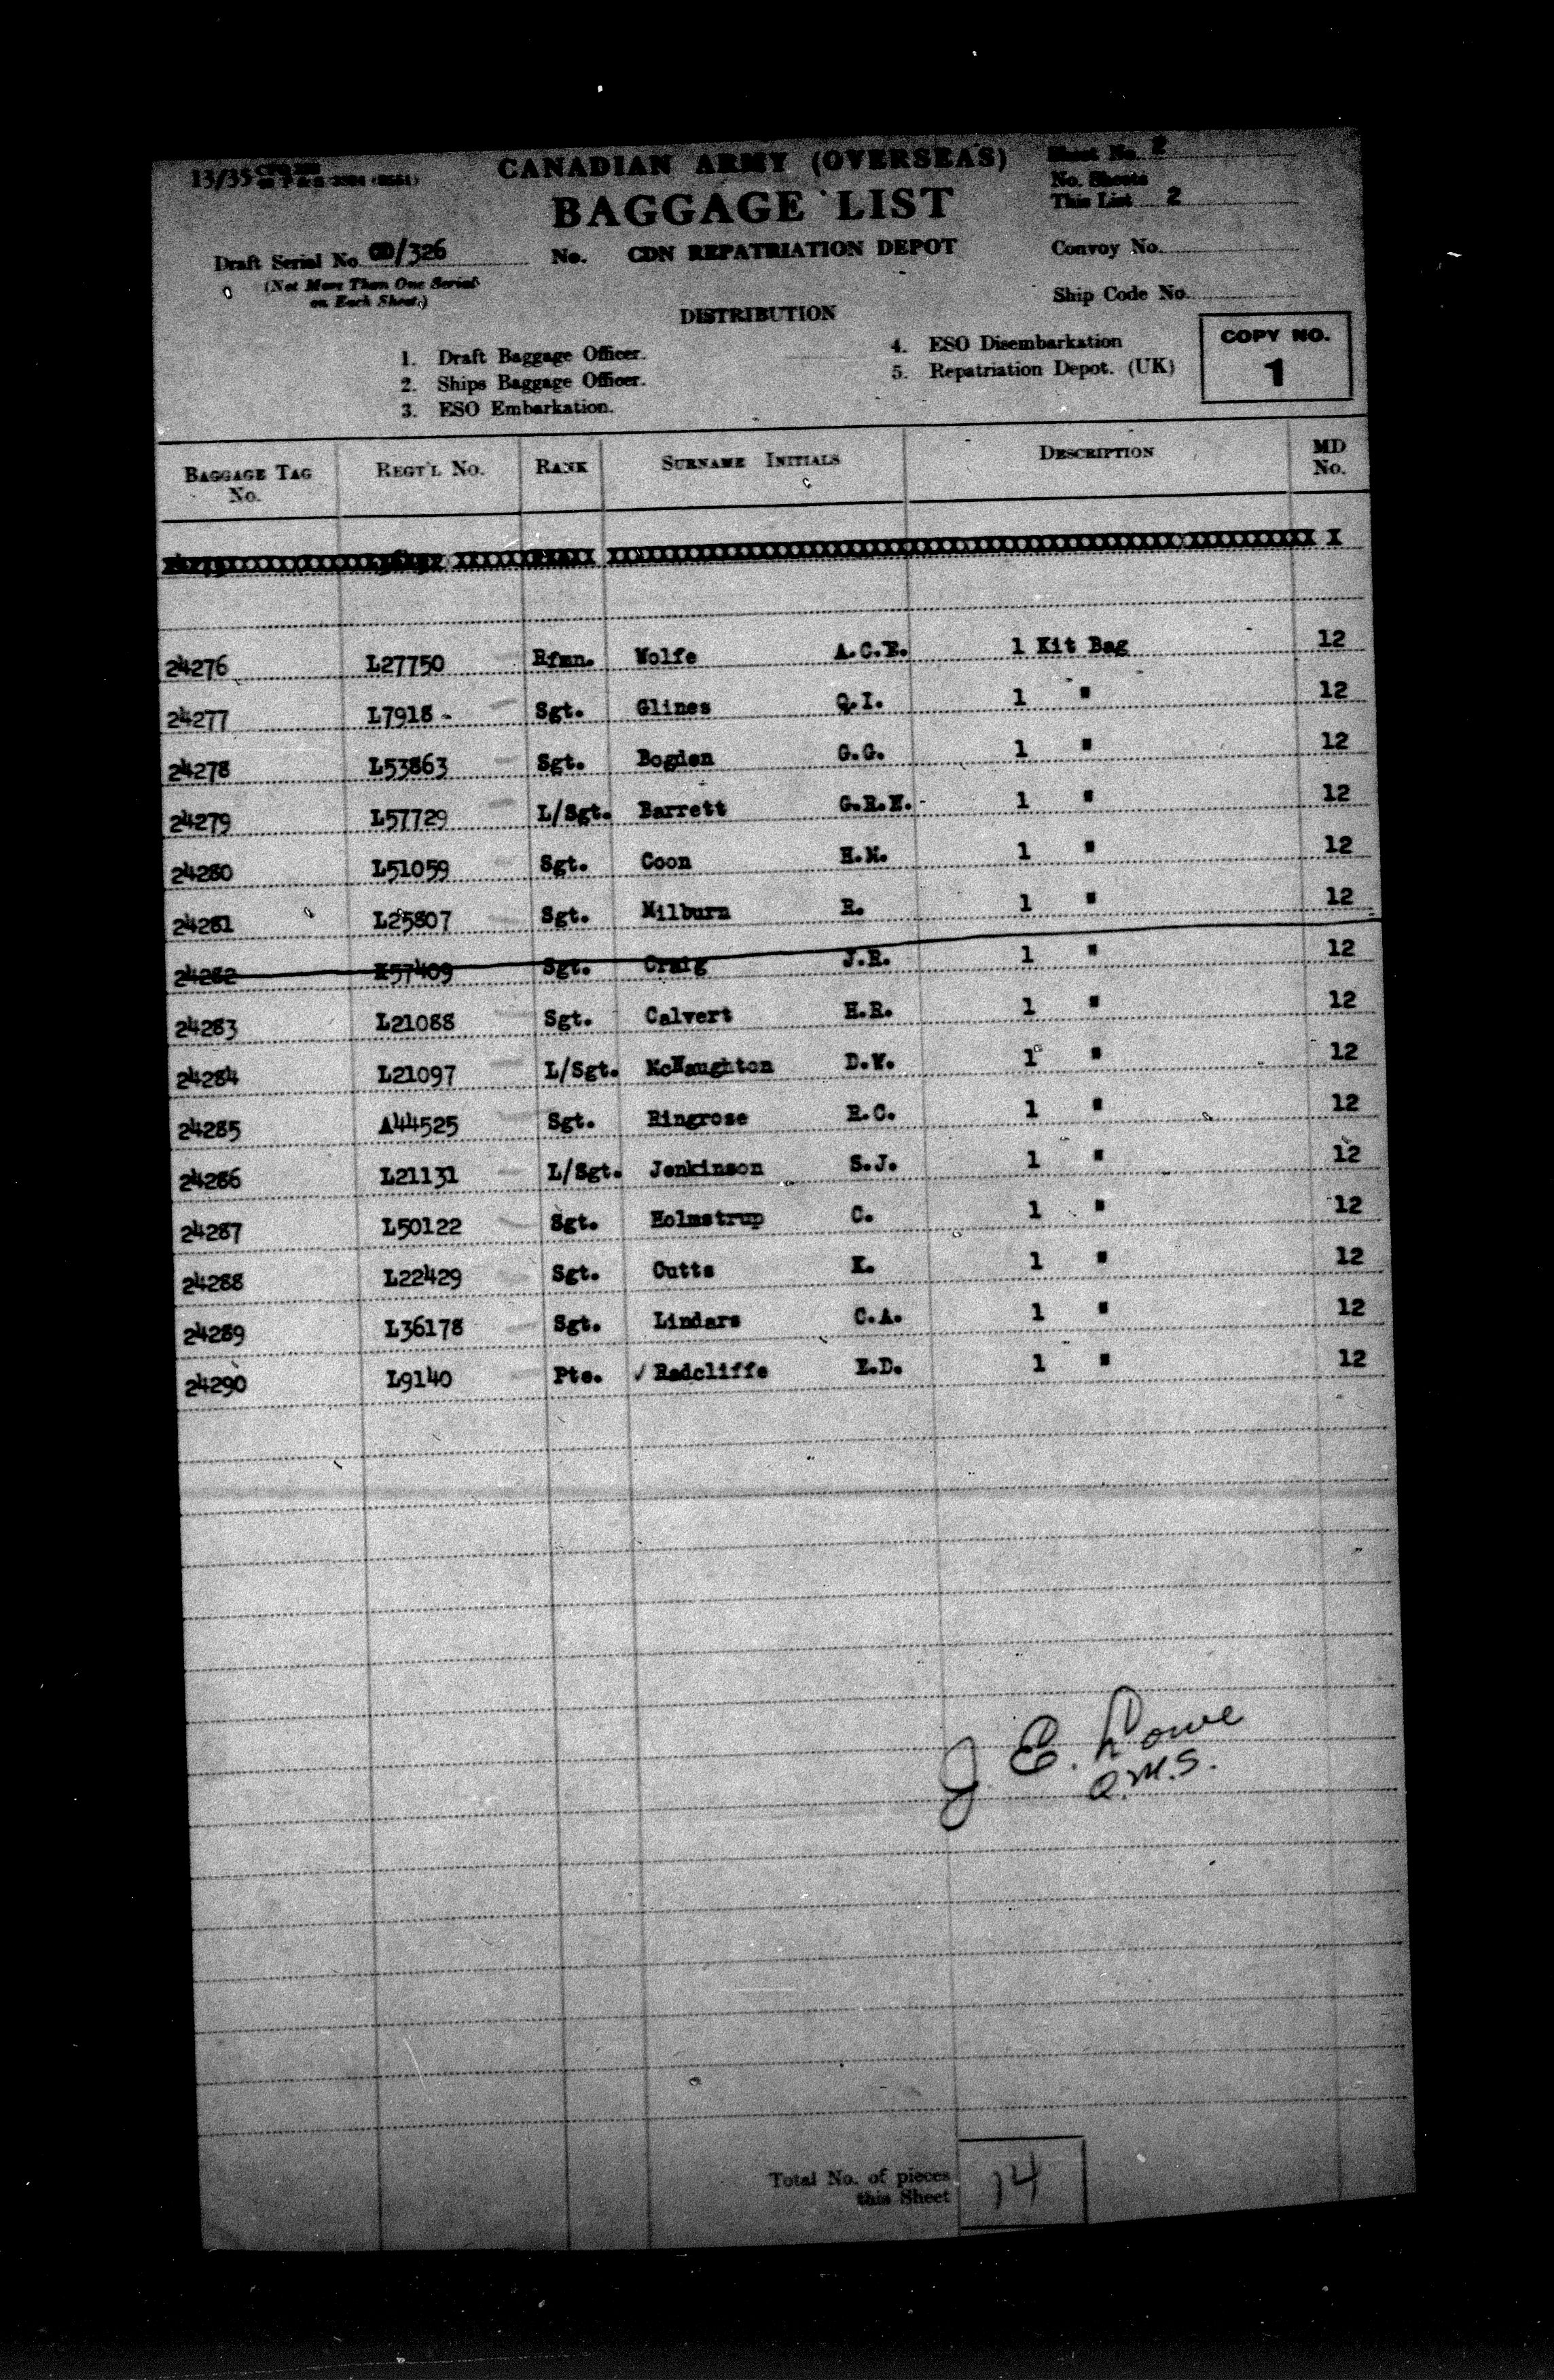 CANADIAN ARMY (OVERSEAS)
BAGGAGE LIST
13/35
Sheet No. 2
No. Sheets
This List 2
Draft Serial No. GD/326
(Not More Than One Serial
on Each Sheet.)
No. CDN REPATRIATION DEPOT
Convoy No.
Ship Code No.
DISTRIBUTION
1. Draft Baggage Officer.
2. Ships Baggage Officer.
3. ESO Embarkation.
4. ESO Disembarkation
5. Repatriation Depot. (UK)
COPY NO.
1
BAGGAGE TAG No. REGT'L No. RANK SURNAME INITIALS DESCRIPTION MD No.
24276 L27750 Rfmn. Wolfe A.C.E. 1 Kit Bag 12
24277 L7918 Sgt. Glines Q.I. 1 " 12
24278 L53863 Sgt. Bogden G.G. 1 " 12
24279 L57729 L/Sgt. Barrett 1 " 12
24280 L51059 Sgt. Coon H.M. 1 " 12
24281 L25807 Sgt. Milburn R. 1 " 12
24282 57409 Sgt. Craig J.R. 1 " 12
24283 L21088 Sgt. Calvert H.R. 1 " 12
24284 L21097 L/Sgt. McNaughton D.W. 1 " 12
24285 A44525 Sgt. Ringrose R.C. 1 " 12
24286 L21131 L/Sgt. Jenkinson S.J. 1 " 12
24287 L50122 Sgt. Holmstrup C. 1 " 12
24288 L22429 Sgt. Cutts K. 1 " 12
24289 L36178 Sgt. Lindars C.A. 1 " 12
24290 L9140 Pte. ✓ Radcliffe E.D. 1 " 12
J E. Lowe
Q.M.S.
Total No. of pieces
this Sheet 14